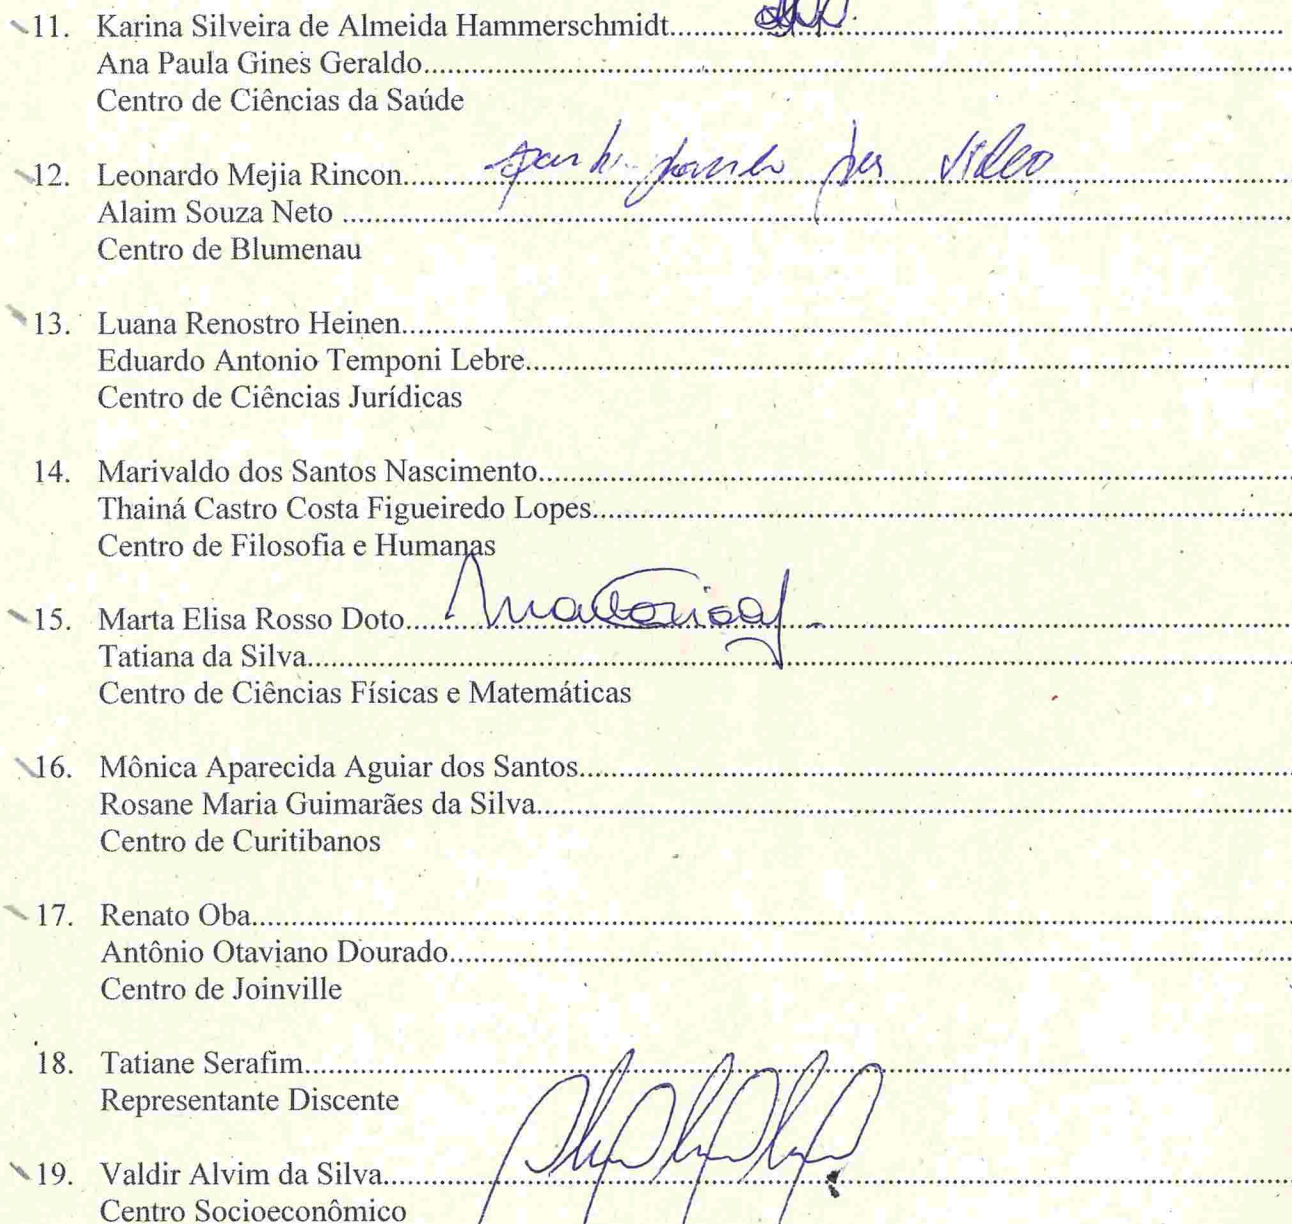 11. Karina Silveira de Almeida Hammerschmidt..........
Ana Paula Gines Geraldo..........
Centro de Ciências da Saúde
12. Leonardo Mejia Rincon.......... participando por video
Alaim Souza Neto ..........
Centro de Blumenau
13. Luana Renostro Heinen..........
Eduardo Antonio Temponi Lebre..........
Centro de Ciências Jurídicas
14. Marivaldo dos Santos Nascimento..........
Thainá Castro Costa Figueiredo Lopes..........
Centro de Filosofia e Humanas
15. Marta Elisa Rosso Doto..........
Tatiana da Silva..........
Centro de Ciências Físicas e Matemáticas
16. Mônica Aparecida Aguiar dos Santos..........
Rosane Maria Guimarães da Silva..........
Centro de Curitibanos
17. Renato Oba..........
Antônio Otaviano Dourado..........
Centro de Joinville
18. Tatiane Serafim..........
Representante Discente
19. Valdir Alvim da Silva..........
Centro Socioeconômico